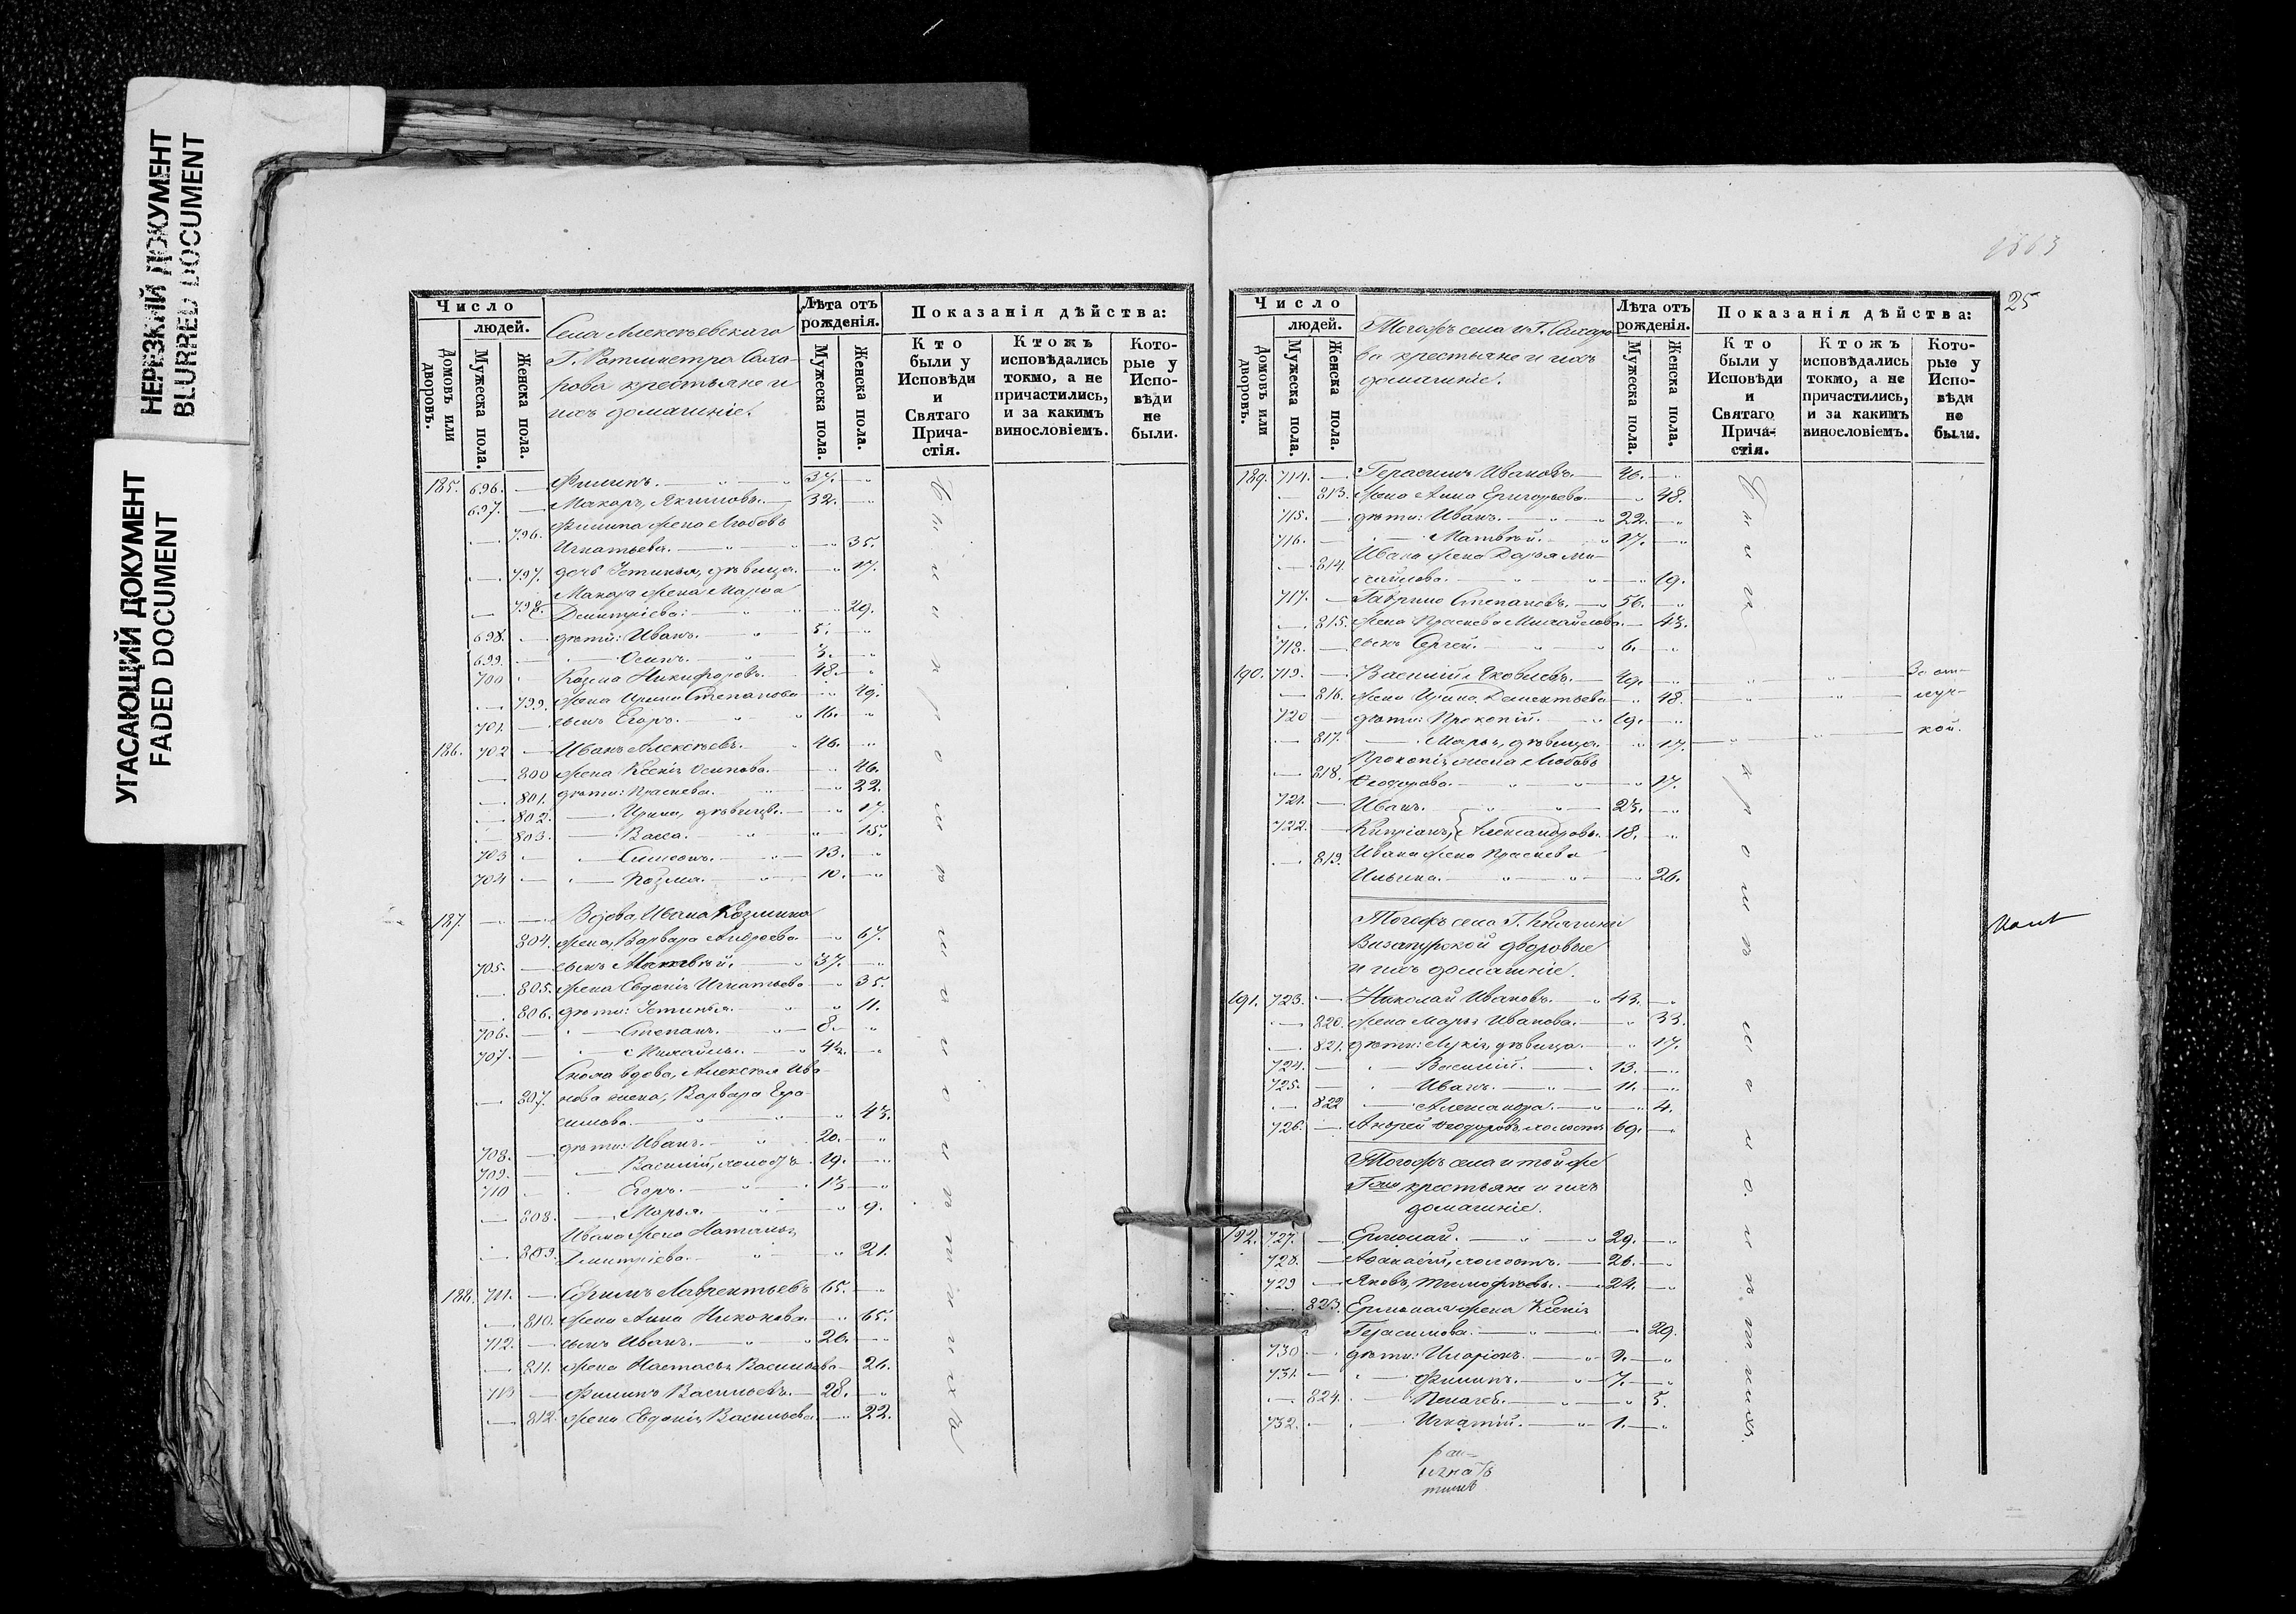 НЕРЕЗКИЙ ДОКУМЕНТ
BLURRED DOCUMENT
УГАСАЮЩИЙ ДОКУМЕНТ
FADED DOCUMENT
Число
людей.
Домовъ или дворовъ.
Мужеска пола.
Женска пола.
Села Алексѣевскаго
Г. Ротмистра Сахо-
рова крестьяне и
ихъ домашніе.
Лѣта отъ рожденія.
Мужеска пола.
Женска пола.
Показанія дѣйства:
Кто были у Исповѣди и Святаго Прича-стія.
Ктожъ исповѣдались токмо, а не причастились, и за какимъ винословіемъ.
Кото-рые у Испо-вѣди не были.
185. 696. Филипъ. 37.
697. Макаръ, Якимовы. 32.
796. Филипа жена Любовь
Игнатьева. 35.
797. дочь Устинья, дѣвица. 17.
Макара жена Марѳа
798. Димитріева: 29.
698. дѣти: Иванъ. 5.
699. Осипъ. 3.
700 Козма Никифоровъ. 48.
799. жена Ирина Степанова 49.
701. сынъ Егоръ. 16.
186. 702 Иванъ Алексѣевъ. 46.
800 жена Ксенія Осипова. 46.
801. дѣти: Праскева. 22.
802. Ирина, дѣвицы. 17.
803. Васса. 15.
703 Симеонъ. 13.
704 Козма. 10.
187. Вдова, Ивана Козмина
804. жена, Варвара Андреева 67.
705. сынъ Матвѣй. 37.
805. жена Евдокія Игнатьева 35.
806. дѣти: Устинья. 11.
706. Степанъ. 8.
707. Михаилъ. 4½.
Сноха вдова, Алексѣя Ива-
807. нова жена, Варвара Гера-
симова. 43.
708. дѣти: Иванъ. 20.
709. Василій, холостъ. 19.
710 Егоръ. 13
808. Марья. 9.
Ивана жена Наталья
809. Димитріева. 21.
188. 711. Ефимъ Лаврентьевъ 65.
810. жена Анна Никонова. 65.
712. сынъ Иванъ. 26.
811. жена Настасья Васильева 26.
713 Филипъ Васильевъ. 28.
812. жена Евдокія Васильева. 22.
1863
25
Число
людей.
Домовъ или дворовъ.
Мужеска пола.
Женска пола.
Тогожъ села и Г. Сахаро-
ва крестьяне и ихъ
домашніе.
Лѣта отъ рожденія.
Мужеска пола.
Женска пола.
Показанія дѣйства:
Кто были у Исповѣди и Святаго Прича-стія.
Ктожъ исповѣдались токмо, а не причастились, и за какимъ винословіемъ.
Кото-рые у Испо-вѣди не были.
189. 714. Герасимъ Ивановъ. 46.
813. жена Анна Григорьева. 48.
715. дѣти: Иванъ. 22.
716. Матвѣй. 17.
814. Ивана жена Дарья Ми-
хайлова. 19.
717. Гаврило Степановъ. 56.
815. жена Праскева Михайлова. 43.
718. сынъ Сергей. 6.
190. 719. Василій Яковлевъ. 49.
За отлуч-кой.
816. жена Ирина Дементьева 48.
720 дѣти: Прокопій. 19.
817. Марья, дѣвица. 17.
Прокопія жена Любовь
818. Ѳеодорова. 17.
721. Иванъ. 23.
722. Кипріанъ, Александровы. 18.
819. Ивана жена Праскева
Ильина. 26.
Тогожъ села Г. Княгини
Визапурской дворовые
и ихъ домашніе.
191. 723. Николай Ивановъ. 43.
820. жена Марья Иванова. 33.
821. дѣти: Лукія, дѣвица. 17.
724. Василій. 13.
725. Иванъ. 11.
822 Александра. 4.
726. Андрей Ѳеодоровъ, холостъ 69.
Тогожъ села и той же
Гжи крестьяне и ихъ
домашніе.
192. 727. Ермолай. 29.
728. Аѳанасій, холостъ. 26.
729 Яковъ, Тимофѣевы. 24.
823. Ермолая жена Ксенія
Герасимова. 29.
730 дѣти: Иларіонъ. 9.
731. Филипъ. 7.
824. Пелагея. 5.
732. Игнатій. 1.